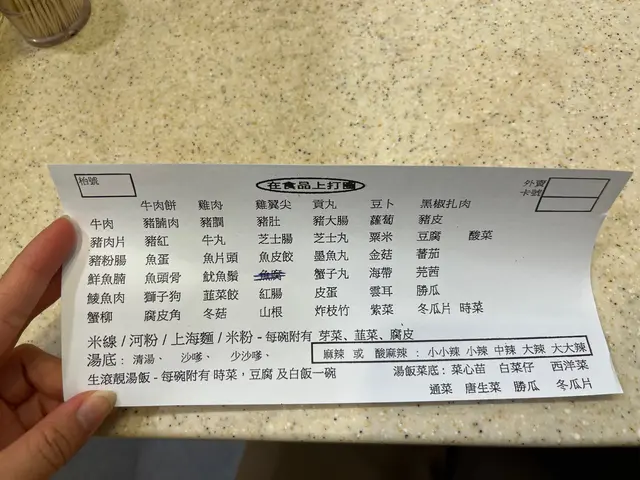 枱號 在食品上打圈 外賣
卡號
牛肉餅 雞肉 雞翼尖 貢丸 豆卜 黑椒扎肉
牛肉 豬腩肉 豬膶 豬肚 豬大腸 蘿蔔 豬皮
豬肉片 豬紅 牛丸 芝士腸 芝士丸 粟米 豆腐 酸菜
豬粉腸 魚蛋 魚片頭 魚皮餃 墨魚丸 金菇 蕃茄
鮮魚腩 魚頭骨 魷魚鬚 魚腐 蟹子丸 海帶 芫茜
鯪魚肉 獅子狗 韮菜餃 紅腸 皮蛋 雲耳 勝瓜
蟹柳 腐皮角 冬菇 山根 炸枝竹 紫菜 冬瓜片 時菜
米線 / 河粉 / 上海麵 / 米粉 - 每碗附有 芽菜、韮菜、腐皮
湯底： 清湯、 沙嗲、 少沙嗲、 麻辣 或 酸麻辣 : 小小辣 小辣 中辣 大辣 大大辣
生滾靚湯飯 - 每碗附有 時菜，豆腐 及白飯一碗 湯飯菜底：菜心苗 白菜仔 西洋菜
通菜 唐生菜 勝瓜 冬瓜片